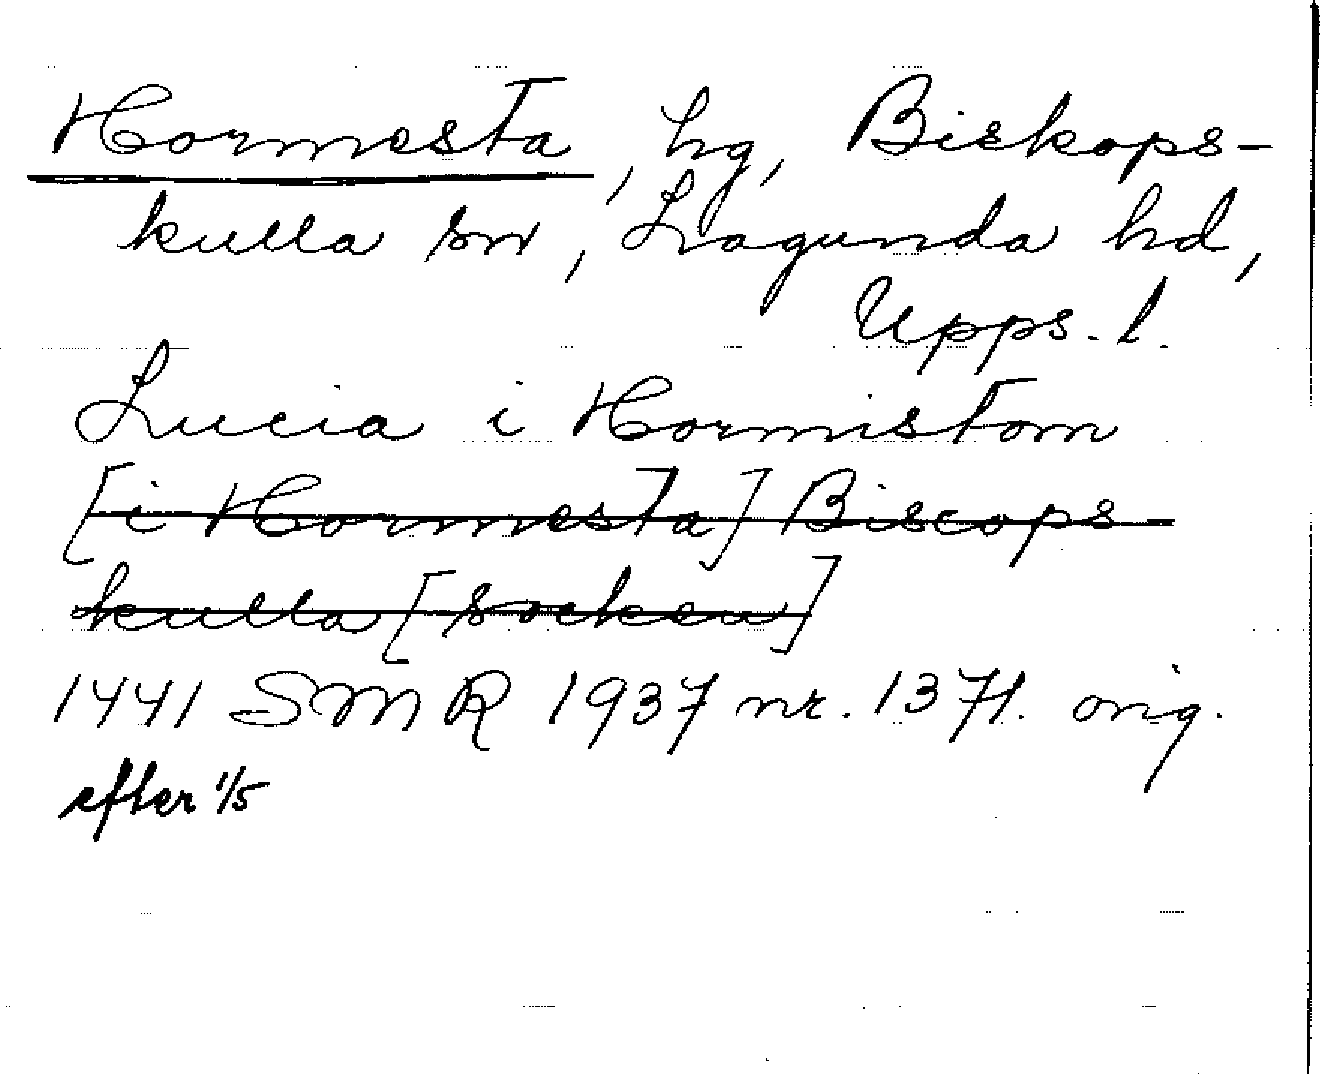 Hormesta, hg, Biskops-
kulla sn, Lagunda hd,
Upps. l.
Lucia i Hormistom
[i Hormesta] Biscops
kulla [socken]
1441 SMR 1937 nr. 1371. orig.
efter 1/5